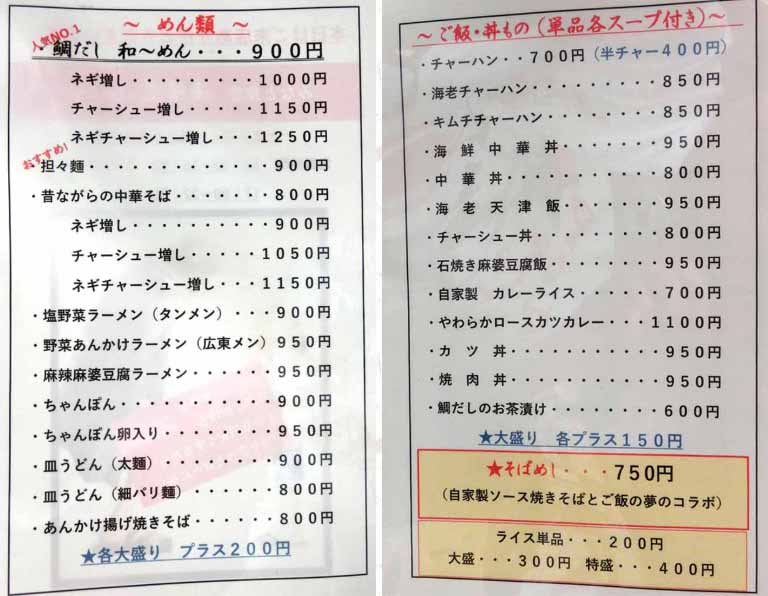 ～ めん類 ～
人気NO.1
鯛だし 和～めん・・・９００円
ネギ増し・・・・・・・・・１０００円
チャーシュー増し・・・・・１１５０円
ネギチャーシュー増し・・・１２５０円
おすすめ！
・担々麺・・・・・・・・・・・・９００円
・昔ながらの中華そば・・・・・・８００円
ネギ増し・・・・・・・・・・９００円
チャーシュー増し・・・・・１０５０円
ネギチャーシュー増し・・・１１５０円
・塩野菜ラーメン（タンメン）・・・９００円
・野菜あんかけラーメン（広東メン）９５０円
・麻辣麻婆豆腐ラーメン・・・・・９５０円
・ちゃんぽん・・・・・・・・・・９００円
・ちゃんぽん卵入り・・・・・・・・９５０円
・皿うどん（太麺）・・・・・・・・９００円
・皿うどん（細パリ麺）・・・・・・８００円
・あんかけ揚げ焼きそば・・・・・・８００円
★各大盛り プラス２００円
～ご飯・丼もの（単品各スープ付き）～
・チャーハン・・７００円（半チャー４００円）
・海老チャーハン・・・・・・・・８５０円
・キムチチャーハン・・・・・・・８５０円
・海 鮮 中 華 丼・・・・・・・９５０円
・中 華 丼・・・・・・・・・・８００円
・海 老 天 津 飯・・・・・・・９５０円
・チャーシュー丼・・・・・・・・８００円
・石焼き麻婆豆腐飯・・・・・・・９５０円
・自家製 カレーライス・・・・・７００円
・やわらかロースカツカレー・・・１１００円
・カ ツ 丼・・・・・・・・・・９５０円
・焼 肉 丼・・・・・・・・・・９５０円
・鯛だしのお茶漬け・・・・・・・６００円
★大盛り 各プラス１５０円
★そばめし・・・７５０円
（自家製ソース焼きそばとご飯の夢のコラボ）
ライス単品・・・２００円
大盛・・・３００円 特盛・・・４００円